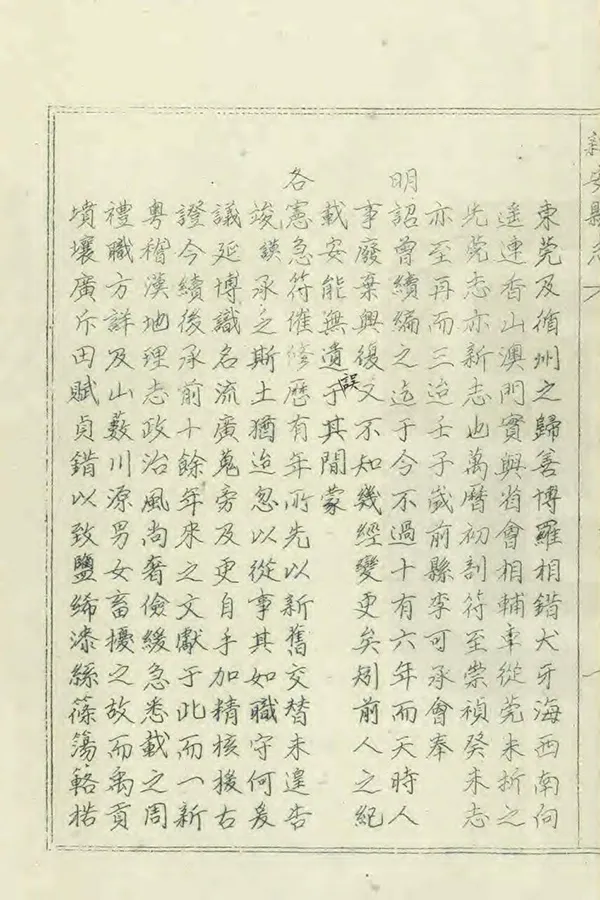 新安縣志
東莞及循州之歸善博羅相錯犬牙海西南向
遥連香山澳門實與省會相輔車從莞未折之
先莞志亦新志也萬曆初剖符至崇禎癸未志
亦至再而三迨壬子歲前縣李可承會奉
明詔曾續編之迄于今不過十有六年而天時人
事廢棄興復又不知幾經變更矣矧前人之紀
載安能無遺誤于其間蒙
各憲急符催修歷有年所先以新舊交替未遑告
竣鏌承之斯土猶迨忽以從事其如職守何爰
議延博識名流廣蒐旁及更自手加精核援古
證今續後承前十餘年來之文獻于此而一新
粵稽漢地理志政治風尚奢儉緩急悉載之周
禮職方詳及山藪川源男女畜擾之故而禹貢
墳壤廣斥田賦貞錯以致鹽絺漆絲篠簜簵楛